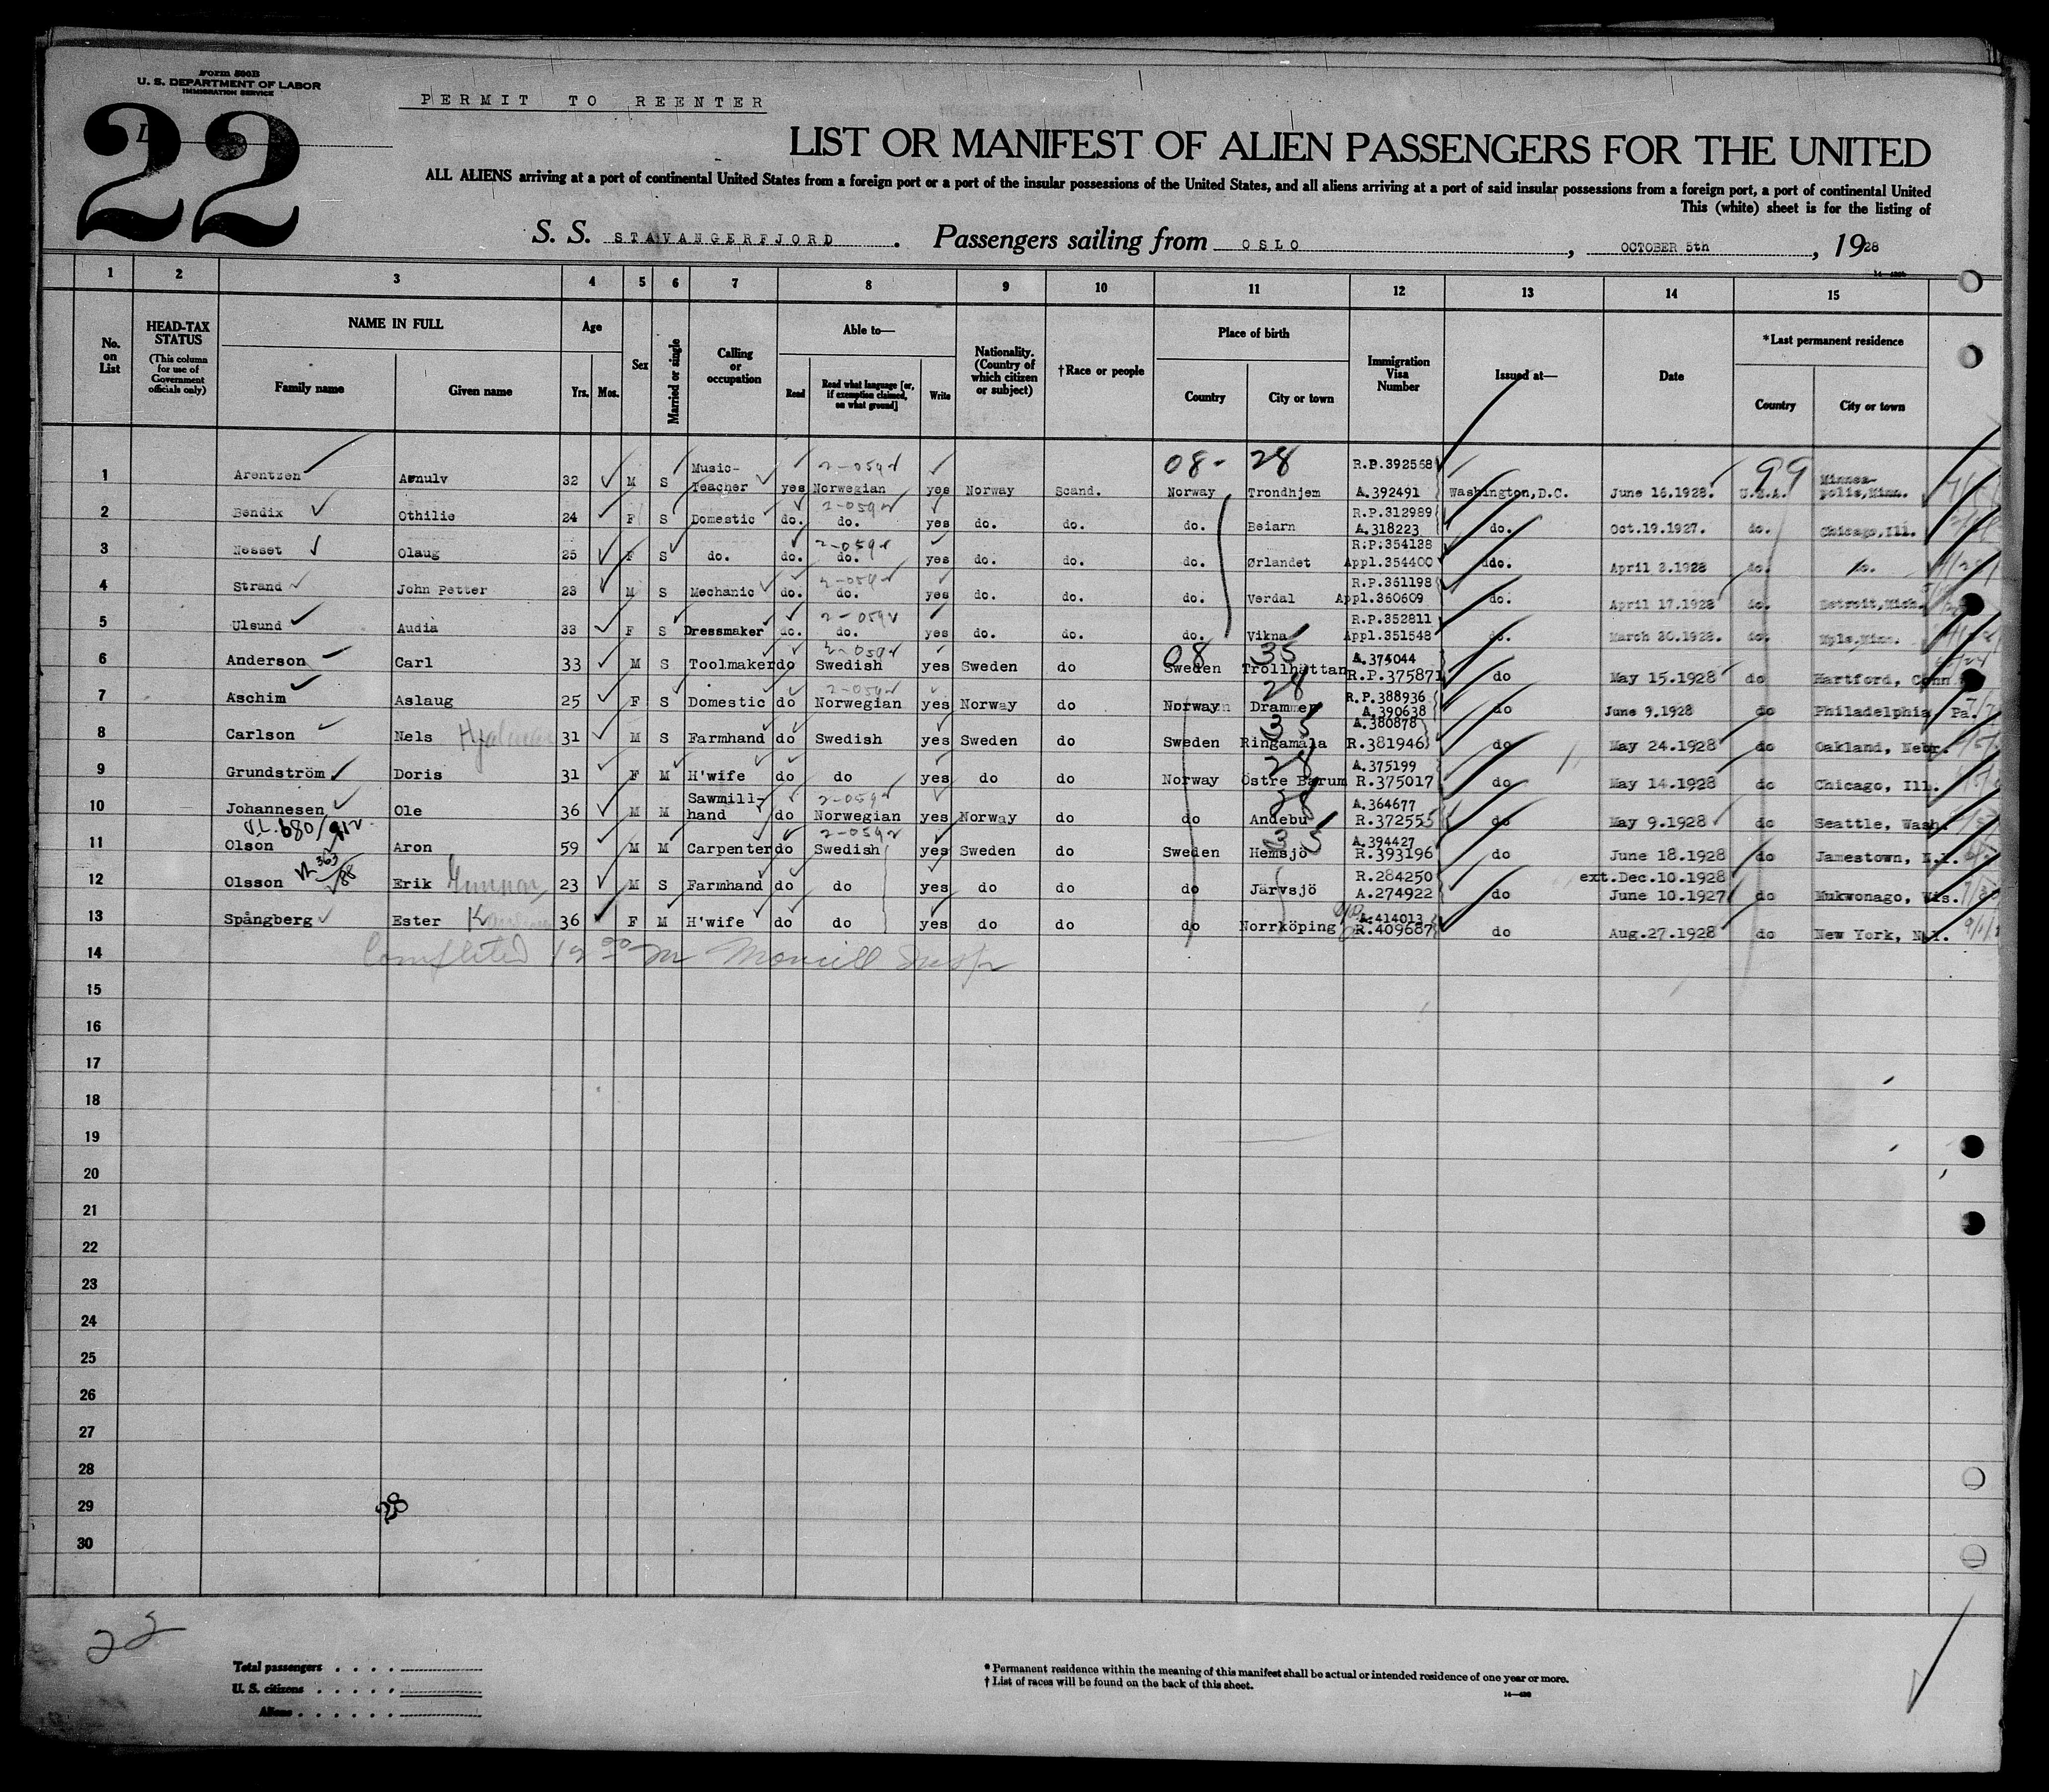 Form 500B
U. S. DEPARTMENT OF LABOR
IMMIGRATION SERVICE
PERMIT TO REENTER
22
LIST OR MANIFEST OF ALIEN PASSENGERS FOR THE UNITED
ALL ALIENS arriving at a port of continental United States from a foreign port or a port of the insular possessions of the United States, and all aliens arriving at a port of said insular possessions from a foreign port, a port of continental United
This (white) sheet is for the listing of
S. S. STAVANGERFJORD. Passengers sailing from OSLO, OCTOBER 5th, 1928
1 2 3 4 5 6 7 8 9 10 11 12 13 14 15
No. on List
HEAD-TAX STATUS (This column for use of Government officials only)
NAME IN FULL
Family name Given name
Age Yrs. Mos.
Sex
Married or single
Calling or occupation
Able to—
Read Read what language [or, if exemption claimed, on what ground] Write
Nationality. (Country of which citizen or subject)
†Race or people
Place of birth
Country City or town
Immigration Visa Number
Issued at—
Date
*Last permanent residence
Country City or town
08- 28 R.P.392568 99
1 Arentzen Arnulv 32 M S Music-Teacher yes Norwegian yes Norway Scand. Norway Trondhjem A.392491 Washington,D.C. June 16.1928. U.S.A. Minneapolis,Minn.
R.P.312989
2 Bendix Othilie 24 F S Domestic do. do. yes do. do. do. Beiarn A.318223 do. Oct.19.1927. do. Chicago,Ill.
R.P.354138
3 Nesset Olaug 25 F S do. do. do. yes do. do. do. Ørlandet Appl.354400 ddo. April 3.1928 do. do.
R.P.361198
4 Strand John Petter 23 M S Mechanic do. do. yes do. do. do. Verdal Appl.360609 do. April 17.1928 do. Detroit,Mich.
R.P.352811
5 Ulsund Audia 33 F S Dressmaker do. do. yes do. do. do. Vikna Appl.351548 do. March 30.1928. do. Mpls,Minn.
08 35 A.375044
6 Anderson Carl 33 M S Toolmaker do Swedish yes Sweden do Sweden Trollhättan R.P.375871 do May 15.1928 do Hartford, Conn
28 R.P.388936
7 Aschim Aslaug 25 F S Domestic do Norwegian yes Norway do Norway Drammen A.390638 do June 9.1928 do Philadelphia Pa.
35 A.380878
8 Carlson Nels Hjalmar 31 M S Farmhand do Swedish yes Sweden do Sweden Ringamåla R.381946 do May 24.1928 do Oakland, Nebr.
28 A.375199
9 Grundström Doris 31 F M H'wife do do yes do do Norway Östre Bærum R.375017 do May 14.1928 do Chicago, Ill.
28 A.364677
10 Johannesen Ole 36 M M Sawmill-hand do Norwegian yes Norway do do Andebu R.372555 do May 9.1928 do Seattle, Wash.
35 A.394427
11 Olson Aron 59 M M Carpenter do Swedish yes Sweden do Sweden Hemsjö R.393196 do June 18.1928 do Jamestown, N.Y.
R.284250 ext.Dec.10.1928
12 Olsson Erik 23 M S Farmhand do do yes do do do Järvsjö A.274922 do June 10.1927 do Mukwonago, Wis.
A.414013
13 Spångberg Ester 36 F M H'wife do do yes do do do Norrköping R.409687 do Aug.27.1928 do New York, N.Y.
14 Completed
15
16
17
18
19
20
21
22
23
24
25
26
27
28
29 28
30
22
Total passengers
U. S. citizens
Aliens
* Permanent residence within the meaning of this manifest shall be actual or intended residence of one year or more.
† List of races will be found on the back of this sheet.